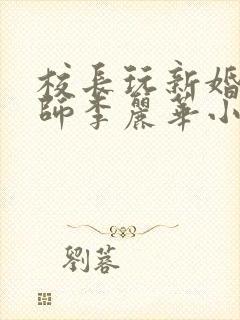 校長玩新婚
師李麗華小
劉蓉